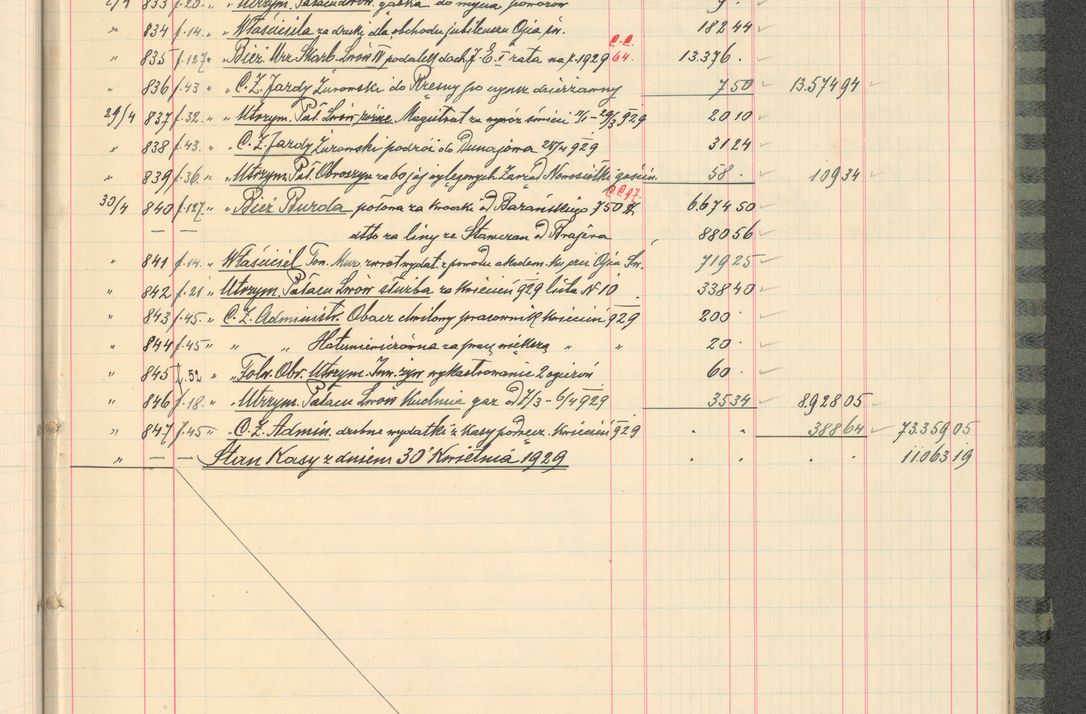 833 f. 20. " Utrzym. Pałacu Lwów. gąbka do mycia powozów 9 .
" 834 f. 14. " Właściciela za druki dla obchodu jubileuszu Ojca św. 182 44
C.C.
" 835 f. 127 " Bież. Urz. Skarb. Lwów IV podatek doch. J. E. I rata na r. 1929 64. 13.376 .
" 836 f. 43 " C. Z. Jazdy Żurowski do Rzesny po czynsz dzierżawny 7 50 13.574 94
29/4 837 f. 32. " Utrzym. Pał. Lwów różne Magistrat za wywóz śmieci 929 20 10
" 838 f. 43. " C. Z. Jazdy Żurowski podróż do Dunajowa 929 31 24
" 839 f. 36. " Utrzym. Pał. Obroszyn 58 . 109 34
C.C. 97.
30/4 840 f. 127. " Bież. Burda od Barańskiego 750 6.674 50
— — dtto za liny ze Stanczan od Brajera 880 56
" 841 f. 14. " Właściciel Tow. Muz. zwrot wydat. z powodu akadem. ku czci Ojca Św. 719 25
" 842 f. 21 " Utrzym. Pałacu Lwów służba za kwiecień 929 lista N 10 338 40
" 843 f. 45. " C. Z. Administr. Obacz chwilowy pracownik kwiecień 929 200 .
" 844 f. 45 " " " za pracę " " 20 .
" 845 f. 52 " " Folw. Obr. Utrzym. Inw. żyw. wykastrowanie 2 ogierów 60 .
" 846 f. 18. " " Utrzym. Pałacu Lwów Kuchnia gaz od 7/3 - 6/4 929 35 34 8.928 05
" 847 f. 45 " " C. Z. Admin. drobne wydatki z kasy podręcz. kwiecień 929 . . 388 64 73.359 05
" — — Stan Kasy z dniem 30 Kwietnia 1929 . . . . 11.063 19